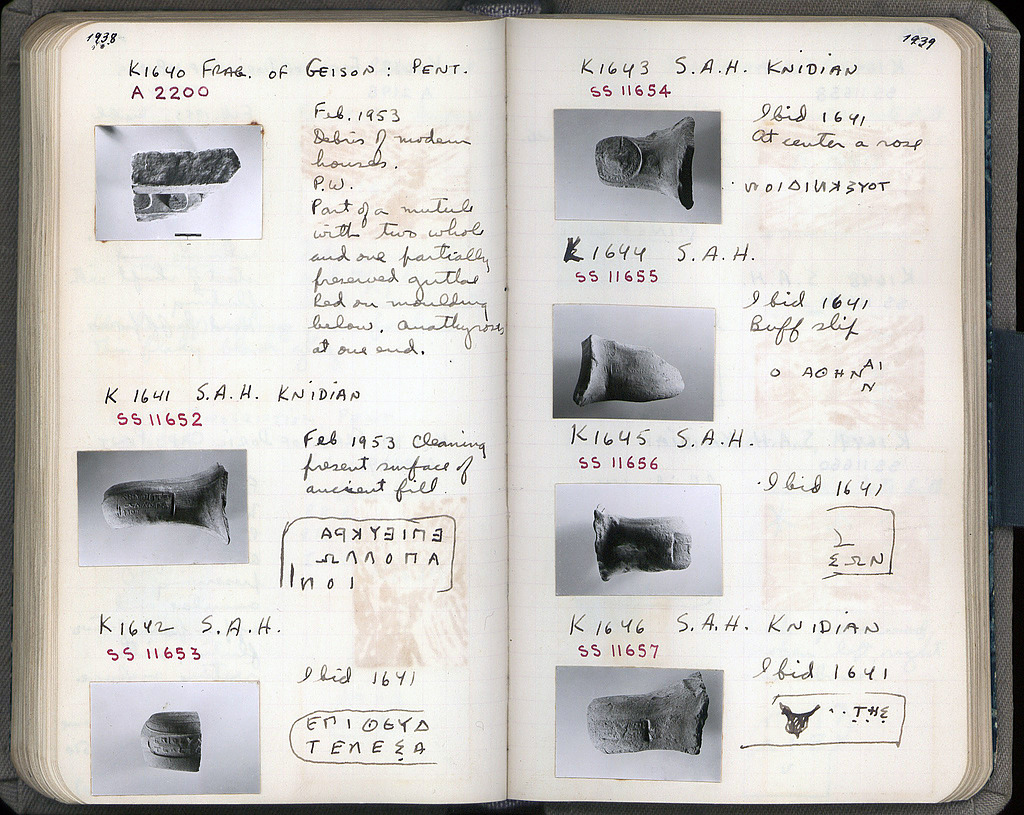 1938
K1640 FRAG. OF GEISON: PENT.
A 2200
Feb. 1953
Debris of modern
houses.
P.W.
Part of a mutule
with two whole
and one partially
preserved guttae
Red on moulding
below. Anathyrosis
at one end.
K 1641 S.A.H. KNIDIAN
SS 11652
Feb 1953 Cleaning
present surface of
ancient fill.
ΕΠΙΕΥΚΡΑ
ΑΠΟΛΛΩ
ΝΟΙ
K1642 S.A.H.
SS 11653
Ibid 1641
ΕΠΙΘΕΥΔ
ΤΕΛΕΣΑ
1939
K1643 S.A.H. KNIDIAN
SS 11654
Ibid 1641
At center a rose
ΝΟΙΔΙΝΚΞΥΟΤ
K1644 S.A.H.
SS 11655
Ibid 1641
Buff slip
Ο ΑΘΗΝ ΑΙ
Ν
K1645 S.A.H.
SS 11656
Ibid 1641
Σ
ΣΩΝ
K1646 S.A.H. KNIDIAN
SS 11657
Ibid 1641
··ΤΗΣ